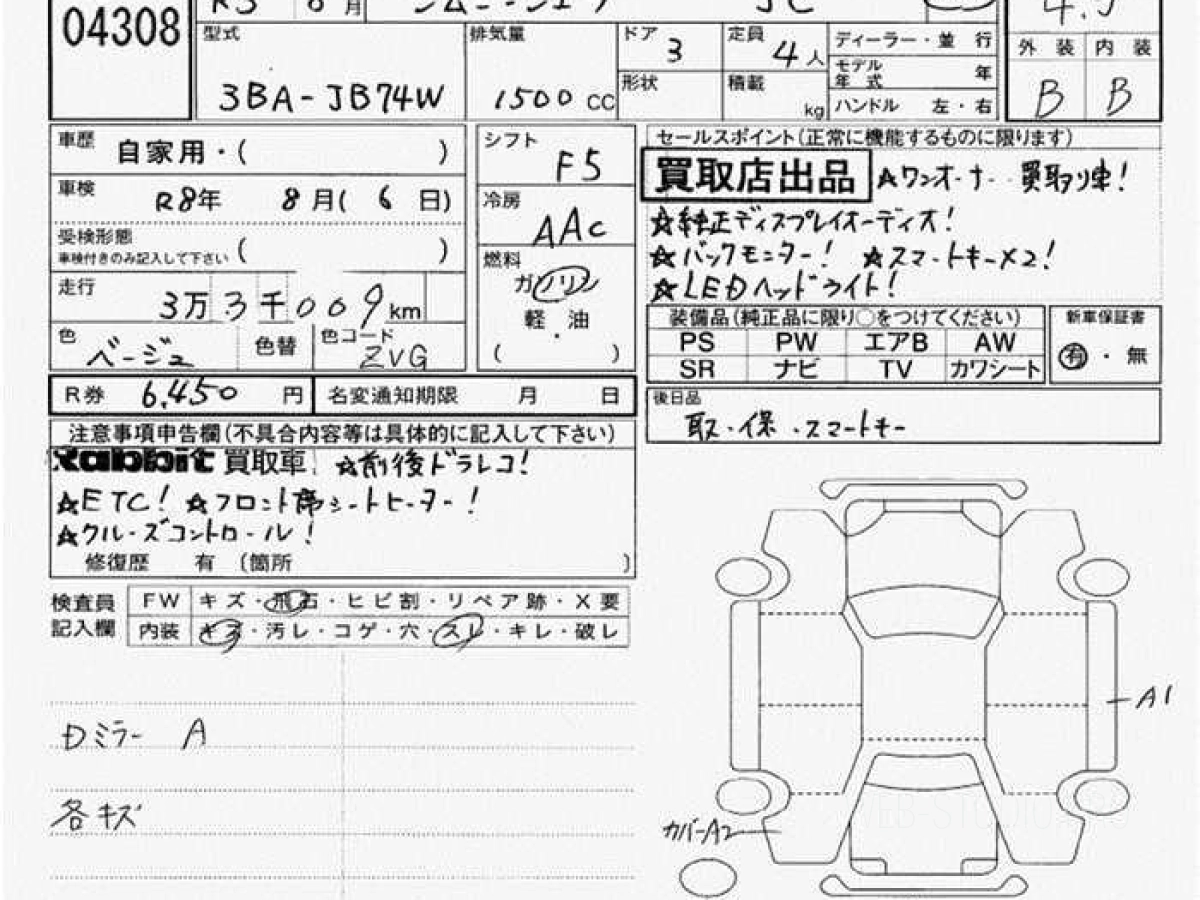 04308
R3 6月 ジムニーシエラ JC
型式 排気量 ドア 3 定員 4人 ディーラー・並行
モデル年式 年
3BA-JB74W 1500cc 形状 積載 kg ハンドル 左・右
外装 内装
B B
車歴 自家用・( )
車検 R8年 8月(6日)
受検形態
車検付きのみ記入して下さい ( )
走行 3万3千009km
色 ベージュ 色替 色コード ZVG
シフト F5
冷房 AAC
燃料
ガソリン
軽・油
( )
セールスポイント(正常に機能するものに限ります)
買取店出品 ☆ワンオーナー 買取り車!
☆純正ディスプレイオーディオ!
☆バックモニター! ☆スマートキー×2!
☆LEDヘッドライト!
装備品(純正品に限り○をつけてください) 新車保証書
PS PW エアB AW 有・無
SR ナビ TV カワシート
R券 6,450円 名変通知期限 月 日
後日品
取・保・スマートキー
注意事項申告欄(不具合内容等は具体的に記入して下さい)
Rabbit 買取車! ☆前後ドラレコ!
☆ETC! ☆フロント席シートヒーター!
☆クルーズコントロール!
修復歴 有 (箇所 )
検査員記入欄 FW キズ・飛石・ヒビ割・リペア跡・X要
内装 キズ・汚レ・コゲ・穴・スレ・キレ・破レ
Dミラー A
各キズ
A1
カバーA2